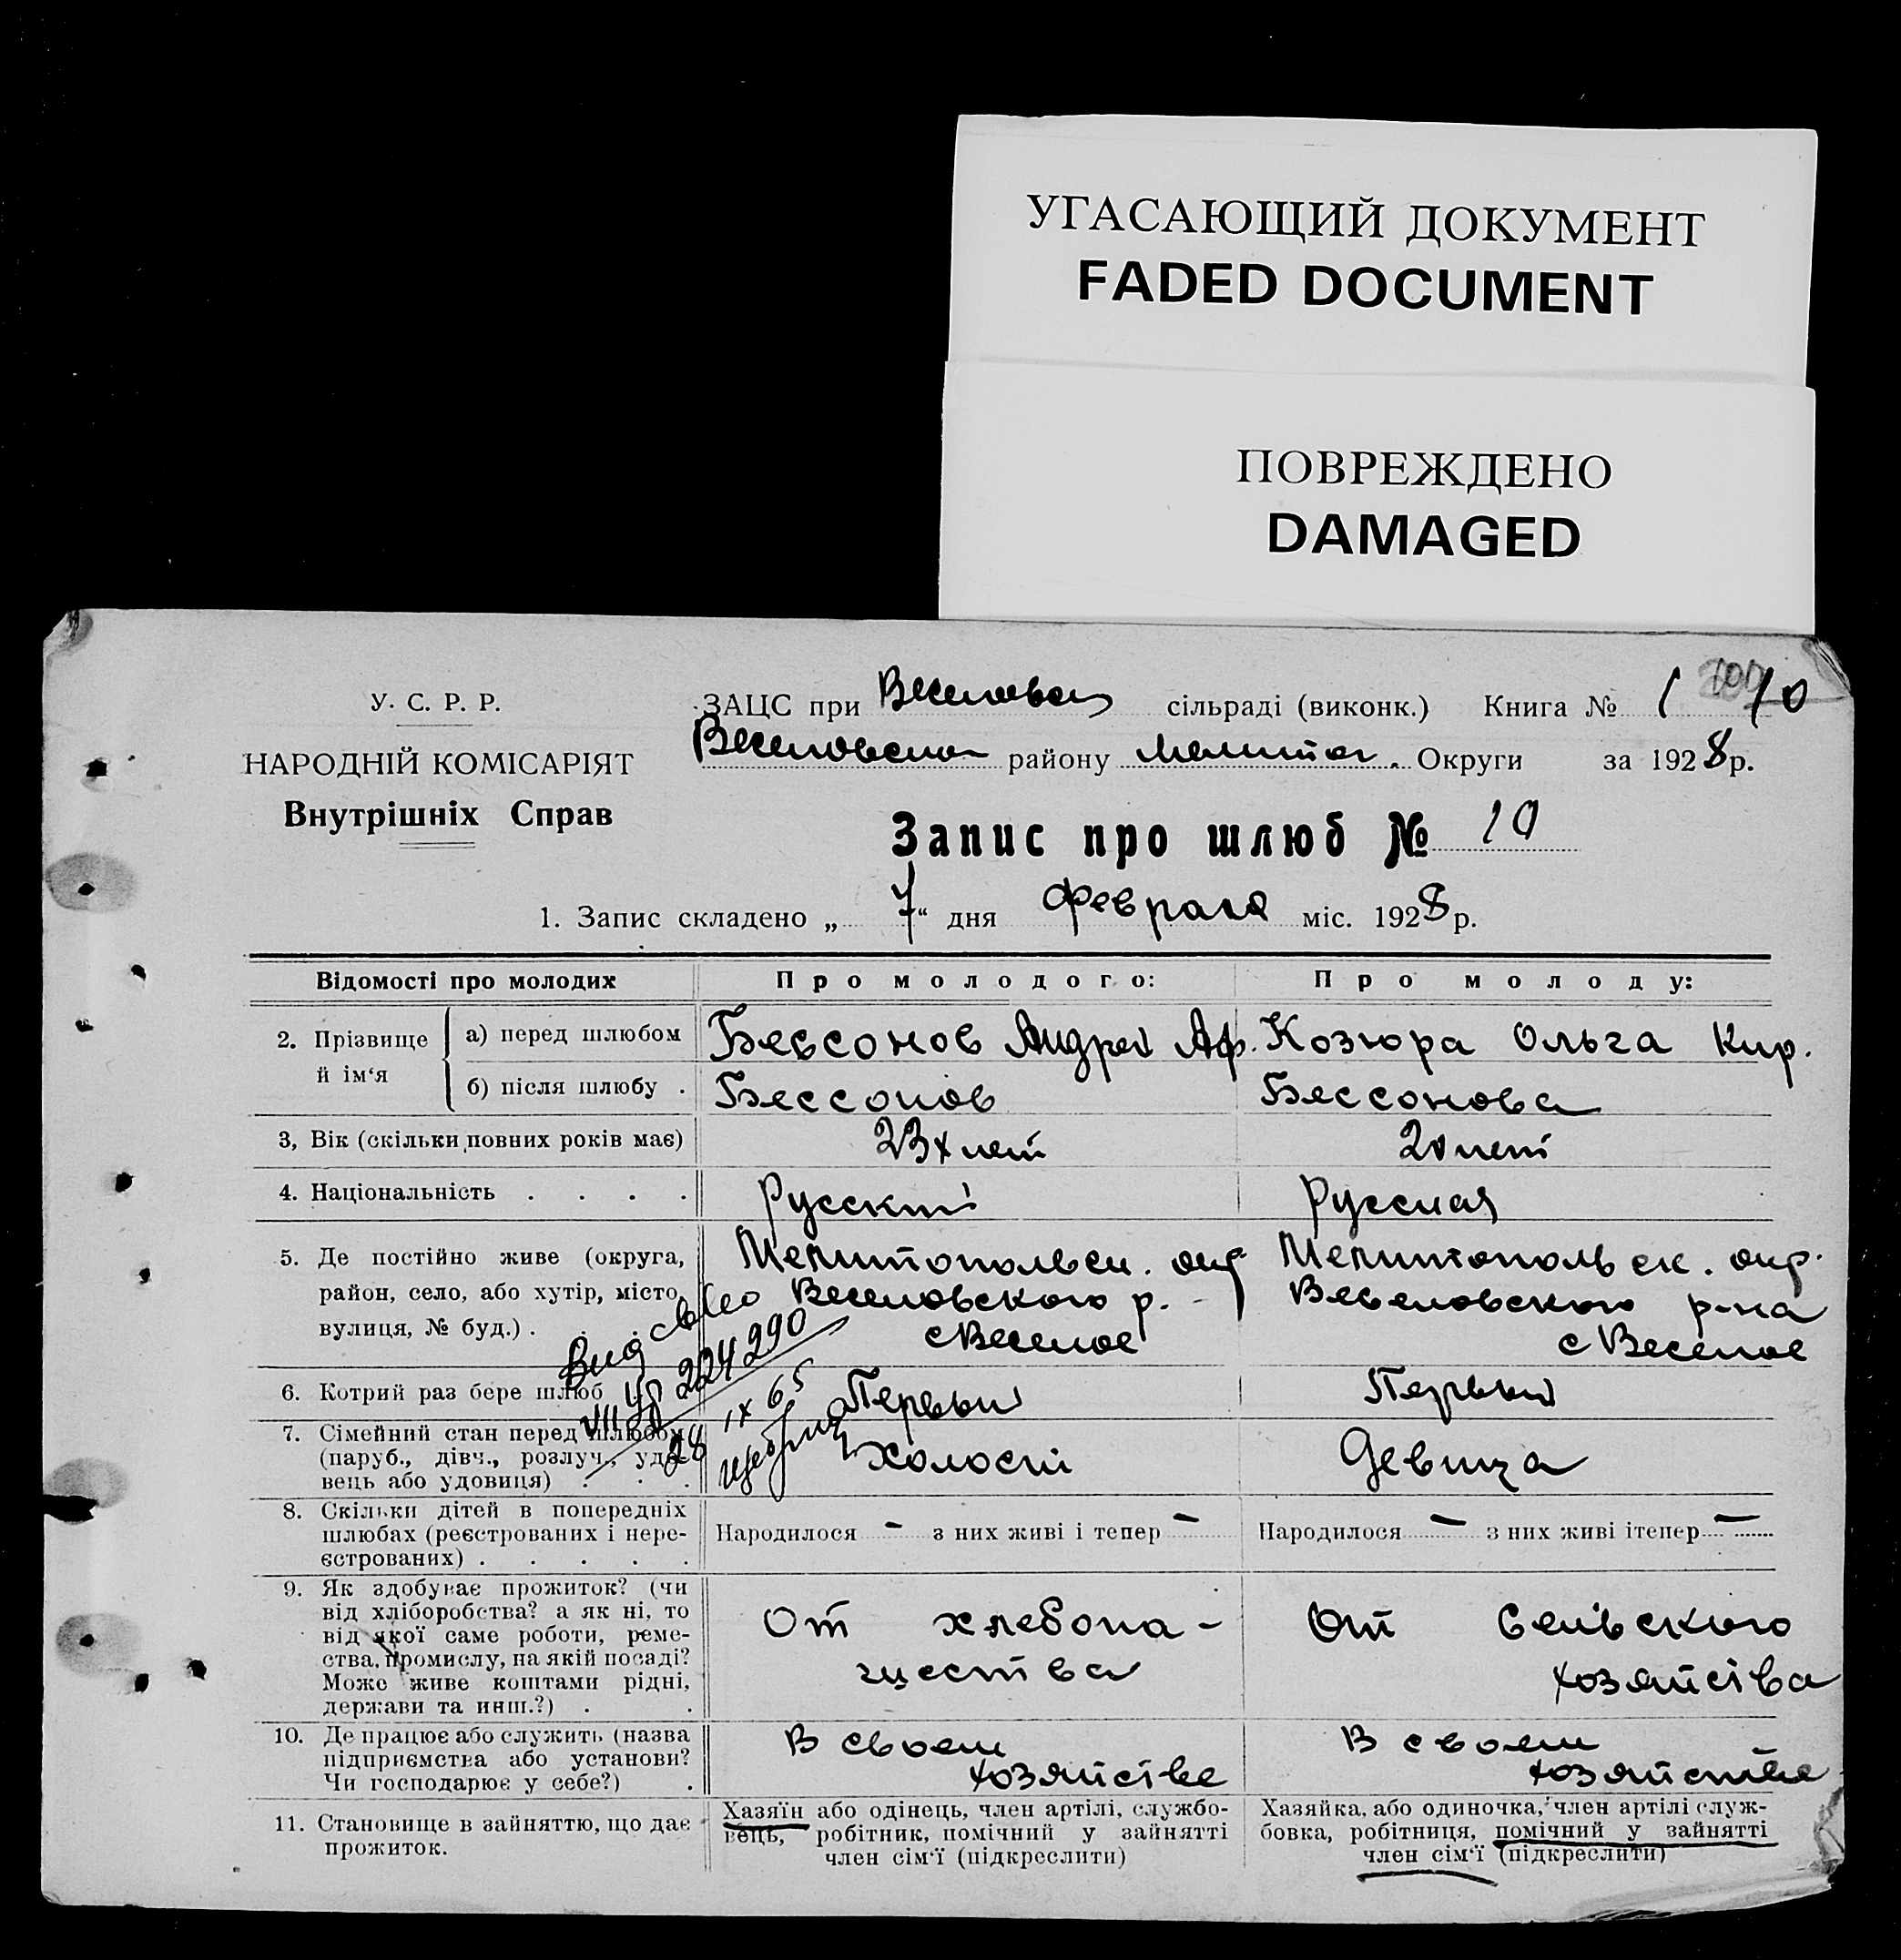 УГАСАЮЩИЙ ДОКУМЕНТ
FADED DOCUMENT
ПОВРЕЖДЕНО
DAMAGED
У. С. Р. Р.
НАРОДНІЙ КОМІСАРІЯТ
Внутрішніх Справ
ЗАЦС при сільраді (виконк.) Книга № 1 10
района Мелитоп. Округи за 1928 р.
Запис про шлюб № 10
1. Запис складено „ 7 “ дня февраля міс. 1928 р.
Відомості про молодих
Про молодого:
Про молоду:
2. Прізвище й ім‘я
а) перед шлюбом
Бессонов Андрей Аф.
Козюра Ольга Кир.
б) після шлюбу .
Бессонов
Бессонова
3, Вік (скільки повних років має)
23х лет
20 лет
4. Національність . . . .
Русский
Русская
5. Де постійно живе (округа,
район, село, або хутір, місто,
вулиця, № буд.) . . .
Мелитопольск. окр
Веселовского р.
с Веселое
Мелитопольск. окр.
Веселовского р-на
с Веселое
6. Котрий раз бере шлюб
Первый
Первый
7. Сімейний стан перед шлюбом
(паруб., дівч., розлуч., удо-
вець або удовиця) . . .
Холост
Девица
Выд св-во
VII 224290
28 IX 65
8. Скільки дітей в попередніх
шлюбах (реєстрованих і нере-
єстрованих) . . . . .
Народилося - з них живі і тепер -
Народилося - з них живі ітепер -
9. Як здобуває прожиток? (чи
від хліборобства? а як ні, то
від якої саме роботи, реме-
ства, промислу, на якій посаді?
Може живе коштами рідні,
держави та инш.?) . .
От хлебопа-
шества
От Сельского
хозяйства
10. Де працює або служить (назва
підприємства або установи?
Чи господарює у себе?) .
В своем
хозяйстве
В своем
хозяйстве
11. Становище в зайняттю, що дає
прожиток.
Хазяїн або одінець, член артілі, службо-
вець, робітник, помічний у зайнятті
член сім‘ї (підкреслити)
Хазяйка, або одиночка, член артілі служ-
бовка, робітниця, помічний у зайнятті
член сім‘ї (підкреслити)